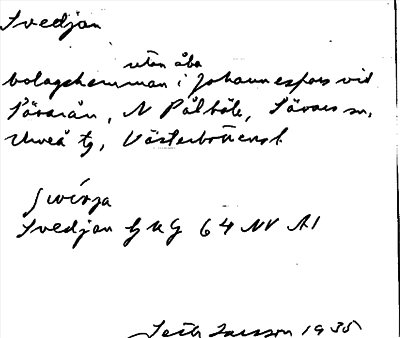 Svedjan
utan åbo
bolagshemman i Johannesfors vid
Sävarån, N Pålböle, Sävars sn,
Umeå tg, Västerbottensl.
Svedjan GUG 64 NV A1
Larsson 1935